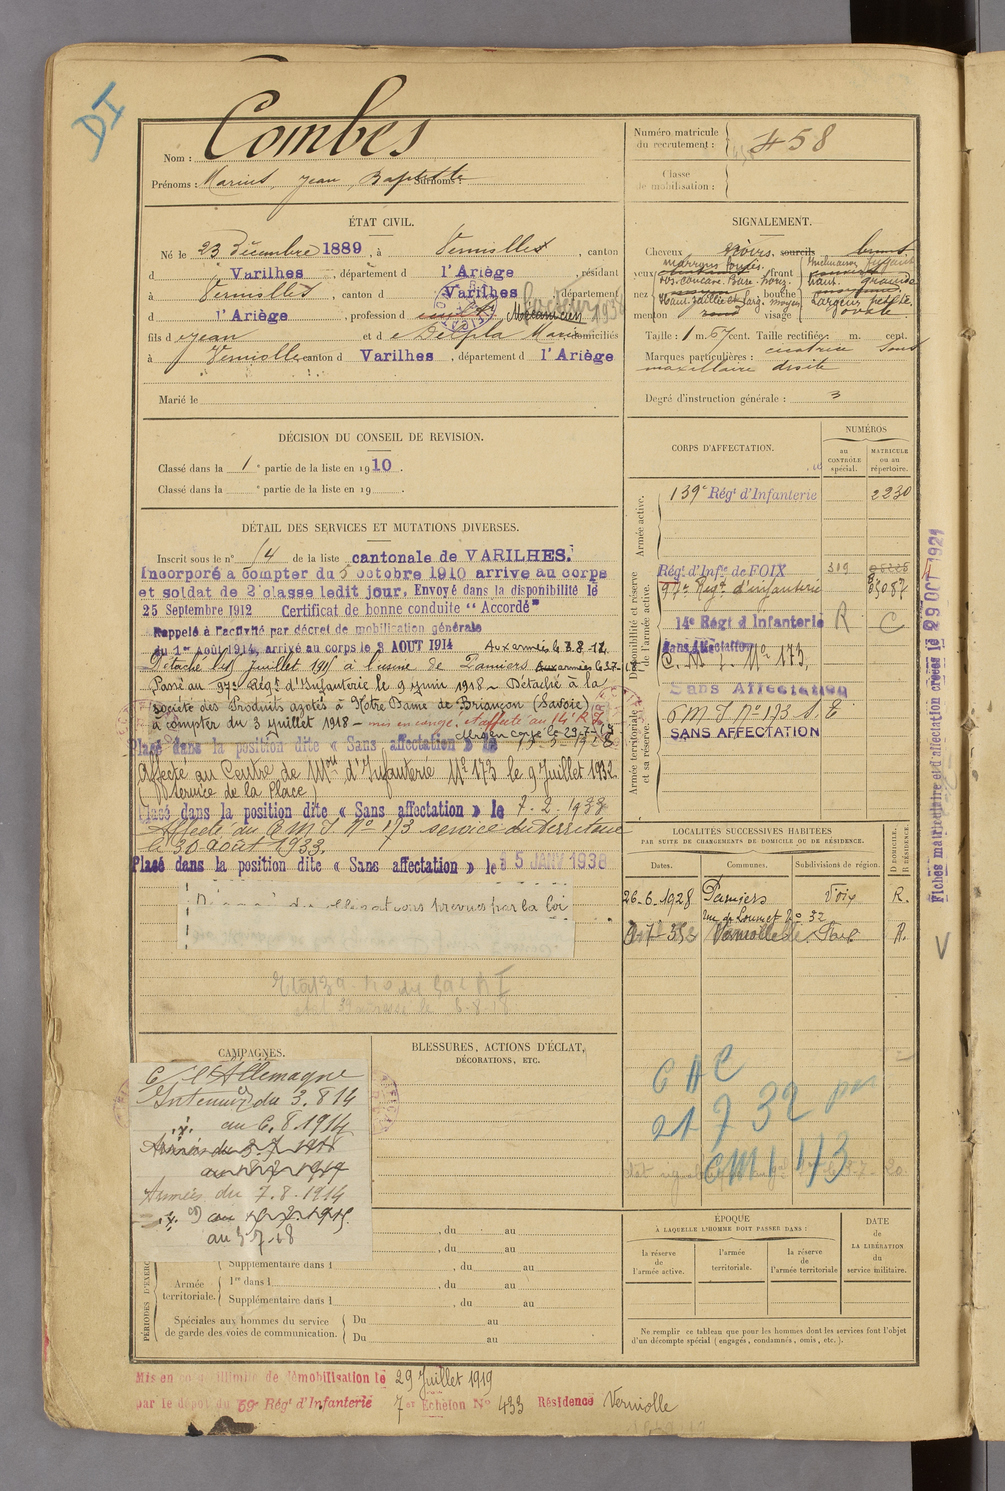 DI
Nom : Combes
Prénoms : Marius, Jean, Baptiste Surnoms :
Numéro matricule
du recrutement : 458
Classe
de mobilisation :
ÉTAT CIVIL.
Né le 23 Décembre 1889, à Verniolles, canton
d Varilhes, département d l'Ariège, résidant
à Verniolles, canton d Varilhes, département
d l'Ariège, profession d Mécanicien
fils d Jean et d e Delpla Marie domiciliés
à Verniolle, canton d Varilhes, département d l'Ariège
Marié le
SIGNALEMENT.
Cheveux noirs sourcils bruns
marrons foncés. Inclinaison fuyant
yeux front haut. grande
dos concave. Base horiz.
nez bouche moyenne
Haut. saillie et larg. moyen Largeur petite.
menton rond visage ovale
Taille : 1 m. 67 cent. Taille rectifiée : m. cent.
Marques particulières : cicatrice sous
maxillaire droite
Degré d'instruction générale : 3
DÉCISION DU CONSEIL DE REVISION.
Classé dans la 1e partie de la liste en 1910.
Classé dans la e partie de la liste en 19 .
CORPS D'AFFECTATION.
NUMÉROS
au
CONTRÔLE
spécial.
MATRICULE
ou au
répertoire.
Armée active.
139e Régt d'Infanterie 2230
Disponibilité et réserve
de l'armée active.
Régt d'Infie de FOIX 319
97e Régt d'infanterie
14e Régt d'Infanterie R C
Sans Affectation
C. M. I. No 173.
Sans Affectation
Armée territoriale
et sa réserve.
C M I No 173 S. T.
SANS AFFECTATION
DÉTAIL DES SERVICES ET MUTATIONS DIVERSES.
Inscrit sous le n° 14 de la liste cantonale de VARILHES.
Incorporé à compter du 5 octobre 1910 arrivé au corps
et soldat de 2e classe ledit jour. Envoyé dans la disponibilité le
25 Septembre 1912 Certificat de bonne conduite "Accordé"
Rappelé à l'activité par décret de mobilisation générale
du 1er Août 1914, arrivé au corps le 3 AOUT 1914
Détaché le juillet 1915 à l'usine de Pamiers
Passé au 97e Régt d'Infanterie le 9 juin 1918 - Détaché à la
société des Produits azotés à Notre Dame de Briançon (Savoie)
à compter du 3 juillet 1918 - mis en congé et affecté au 14e R.I.
Placé dans la position dite « Sans affectation » le 15-5-1928
Affecté au Centre de Mon d'Infanterie No 173 le 9 Juillet 1932.
(Service de la Place)
Placé dans la position dite « Sans affectation » le 7.2.1933
Affecté au C M I No 173 service du territoire
le 30 août 1933.
Placé dans la position dite « Sans affectation » le 5 JANV 1938
des obligations prévues par la loi
LOCALITÉS SUCCESSIVES HABITÉES
PAR SUITE DE CHANGEMENTS DE DOMICILE OU DE RÉSIDENCE.
Dates. Communes. Subdivisions de région. D. DOMICILE. R. RÉSIDENCE.
26-6-1928 Pamiers Foix R.
rue de Loumet No 32
Verniolle Foix R.
Fiches matriculaire et d'affectation créées le 29 OCT 1921
V
C A C
21 7 32
CMI 173
CAMPAGNES.
C. l'Allemagne
Intérieur du 3.8.14
au 6.8.1914
Armées du 7.8.1914
au 3-7-18
BLESSURES, ACTIONS D'ÉCLAT,
DÉCORATIONS, ETC.
, du au
, du au
PÉRIODES D'EXERC
Supplémentaire dans l , du au
Armée
territoriale.
1re dans l , du au
Supplémentaire dans l , du au
Spéciales aux hommes du service
de garde des voies de communication.
Du au
Du au
ÉPOQUE
À LAQUELLE L'HOMME DOIT PASSER DANS :
la réserve
de
l'armée active.
l'armée
territoriale.
la réserve
de
l'armée territoriale
DATE
de
LA LIBÉRATION
du
service militaire.
Ne remplir ce tableau que pour les hommes dont les services font l'objet
d'un décompte spécial ( engagés, condamnés, omis, etc.).
Mis en congé illimité de démobilisation le 29 Juillet 1919
par le dépôt du 59e Régt d'Infanterie 7e Echelon No 433 Résidence Verniolle